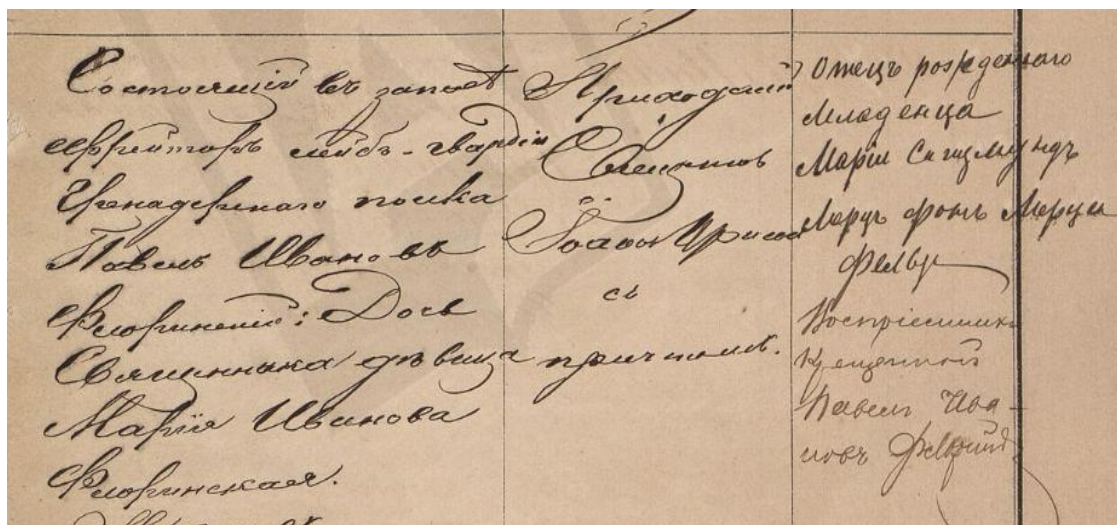 Состоящій въ запасѣ
ефрейторъ лейбъ-гвардіи
Гренадерскаго полка
Павелъ Ивановъ
Флоринскій; Дочь
Священника дѣвица
Марія Иванова
Флоринская.
Приходскій
Священникъ
Іоаннъ
съ
причтомъ.
Отецъ рожденнаго
младенца
Маріи Сигизмундъ
Мерцъ фонъ Мерцен
фельдъ
Воспріемникъ
крещенной
Павелъ Ива-
новъ